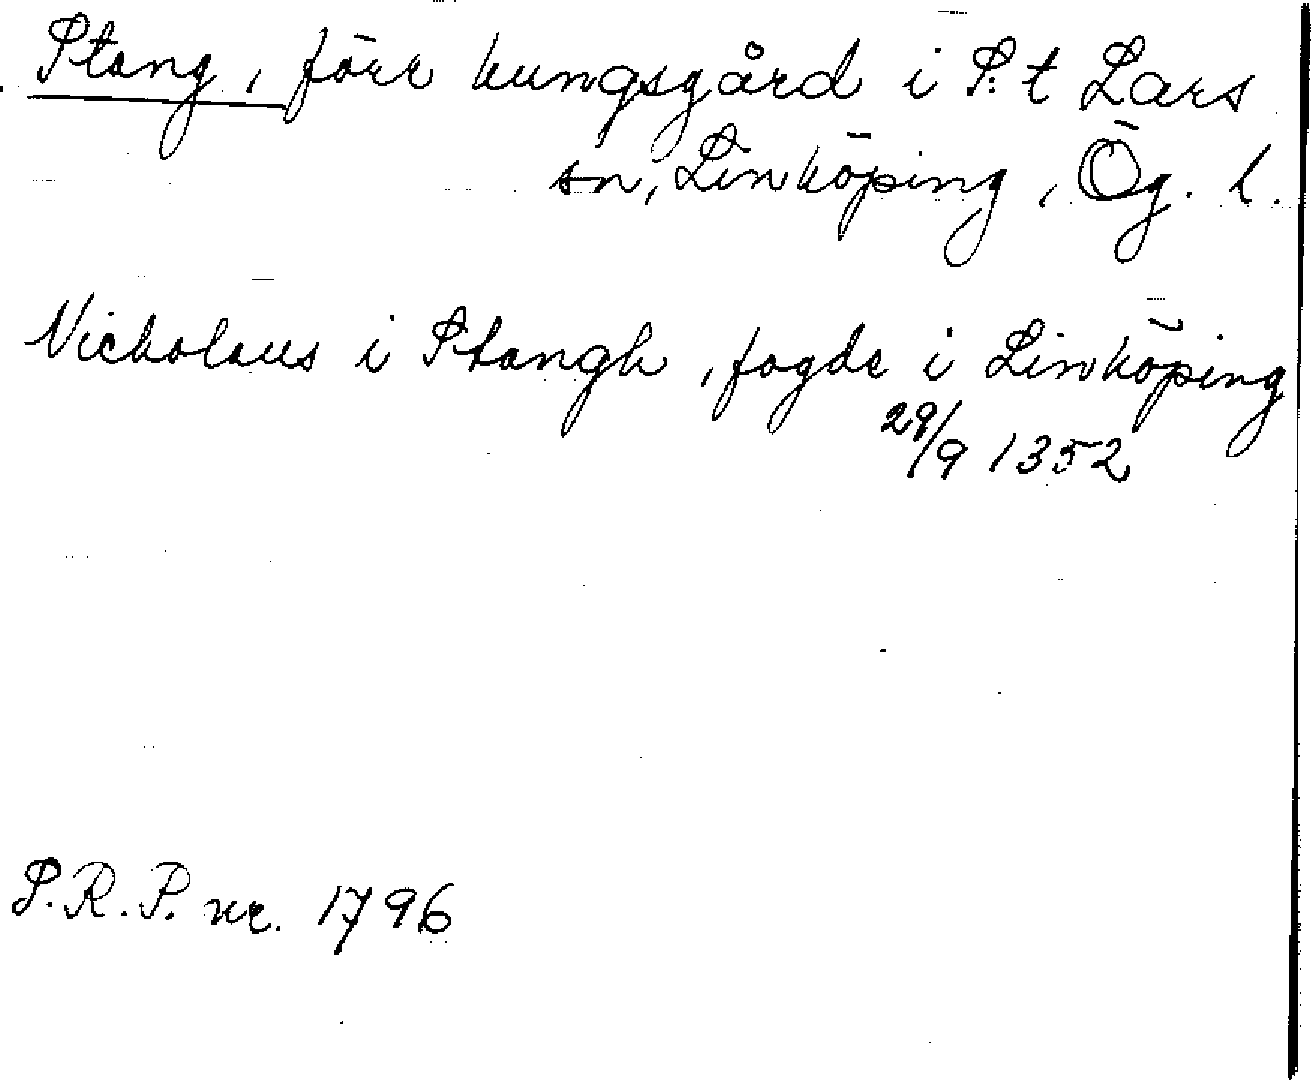 Stang, förr kungsgård i S:t Lars
sn, Linköping, Ög. l.
Nickolaus i Stangh, fogde i Linköping
29/9 1352
S.R.P. nr. 1796